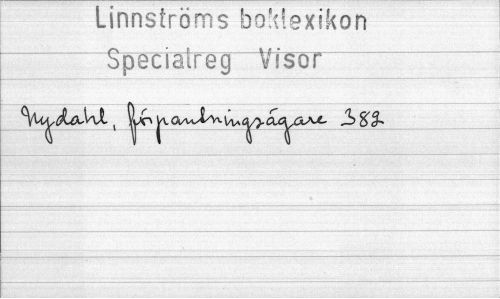 Linnströms boklexikon
Specialreg Visor
Nydahl, förpantningsägare 382